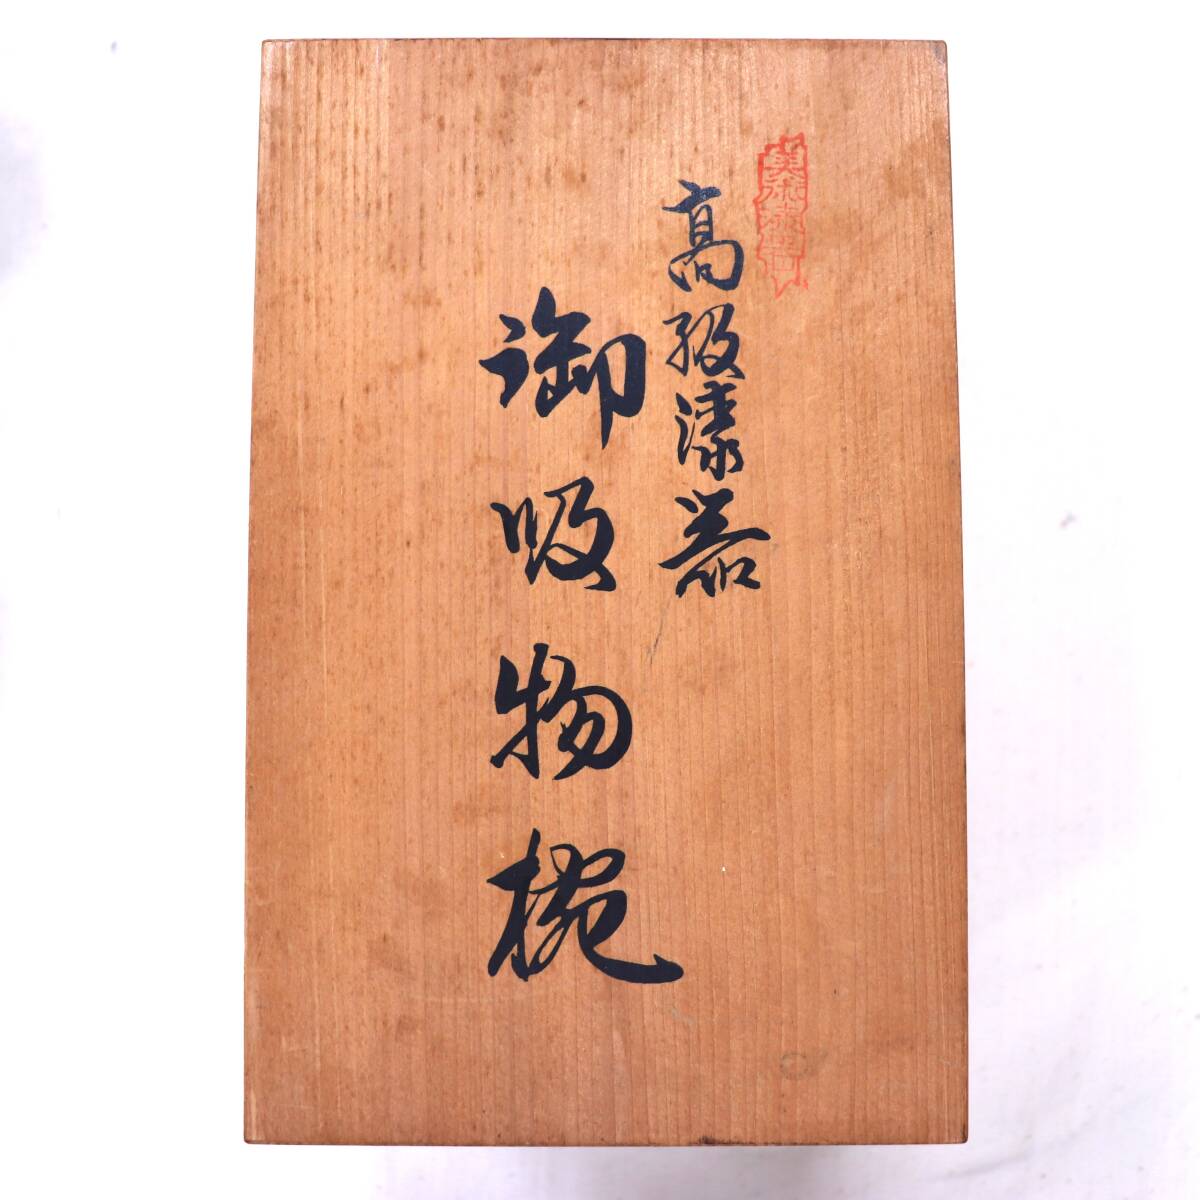 美術漆器
高級漆器
御吸物椀